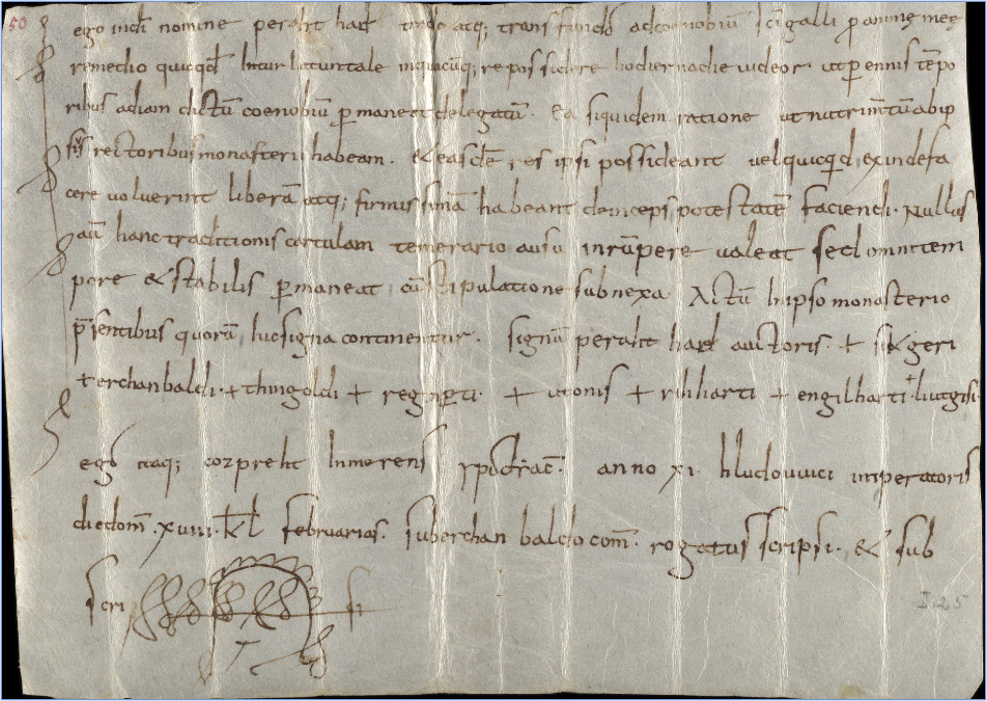 50
ego indi nomine peratt hart trado atq; transfundo adcoenobiū sci galli p anime meę
remedio quicqd Intur batuntale inquacūq; re possidere hodierna die uideor. ut p ennis tēpo
ribus adiam dictū coenobiū pmaneat delegatū. Ea siquidem ratione ut nutrimtū abip
sis rectoribus monasterii habeam. & easdē res ipsi possideant uel quicqd exinde fa
cere voluerint liberā atq; firmissimā habeant deinceps potestatē faciendi. Nullus
aū hanc traditionis cartulam temerario ausu inrūpere ualeat sed omni tem
pore & stabilis pmaneat cū stipulatione subnexa. Actū In ipso monasterio
psentibus quorū hic signa continentur. signū peratt hart auctoris. + sikgeri
+ erchanbaldi. + thingoldi + reginpti. + utonis + rihharti + engilharti. + liutgisi.
ego itaq; cozpreht Inmerens ypodiac. anno xi. hludouuici imperatoris
die dom. xuiii. kl februarias. sub erchanbaldo com. rogatus scripsi. & sub
scri si
I 25